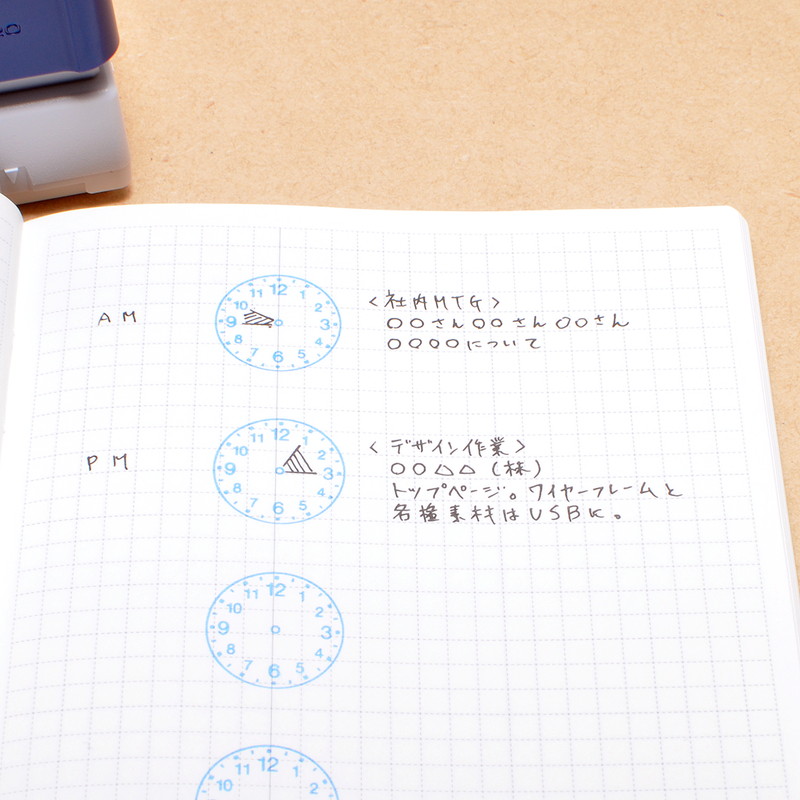 AM
12
1
2
3
4
5
6
7
8
9
10
11
〈社内MTG〉
〇〇さん〇〇さん〇〇さん
〇〇〇〇について
PM
12
1
2
3
4
5
6
7
8
9
10
11
〈デザイン作業〉
〇〇△△(株)
トップページ。ワイヤーフレームと
各種素材はUSBに。
12
1
2
3
4
5
6
7
8
9
10
11
12
1
2
10
11